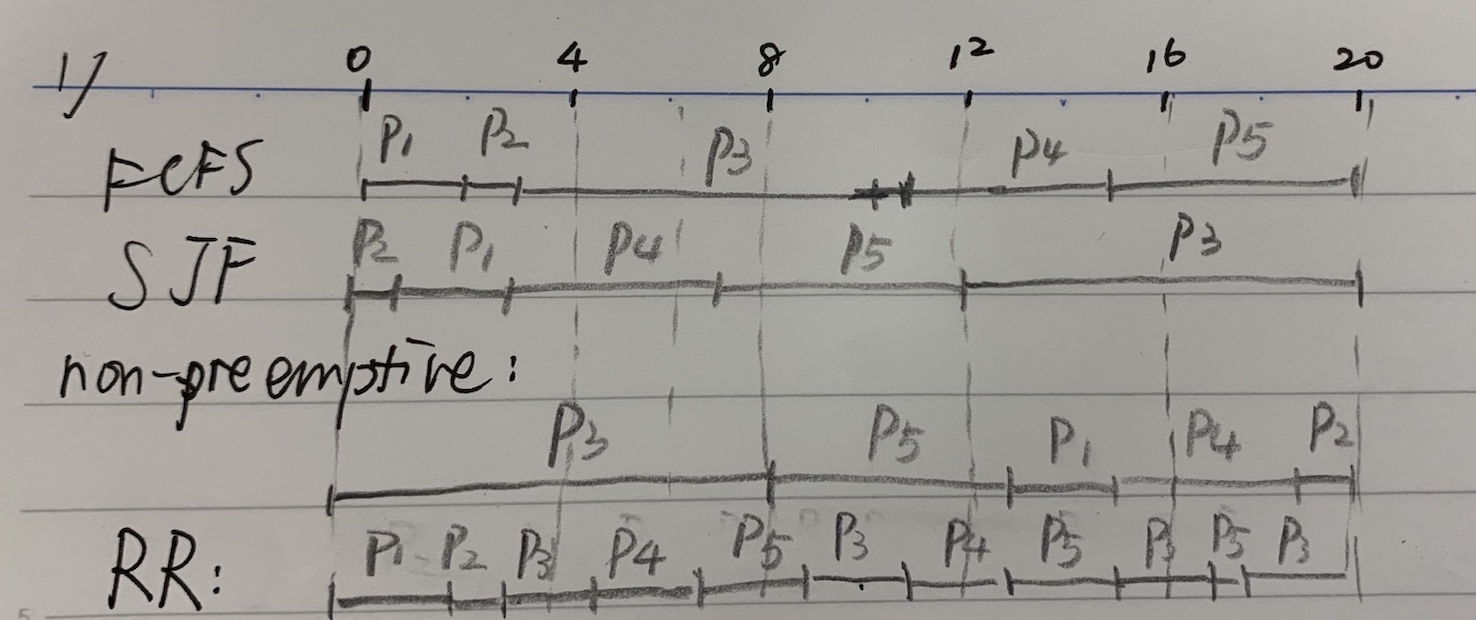 1/ 0 4 8 12 16 20
FCFS P1 P2 P3 P4 P5
SJF P2 P1 P4 P5 P3
non-preemptive:
P3 P5 P1 P4 P2
RR: P1 P2 P3 P4 P5 P3 P4 P5 P3 P5 P3
5